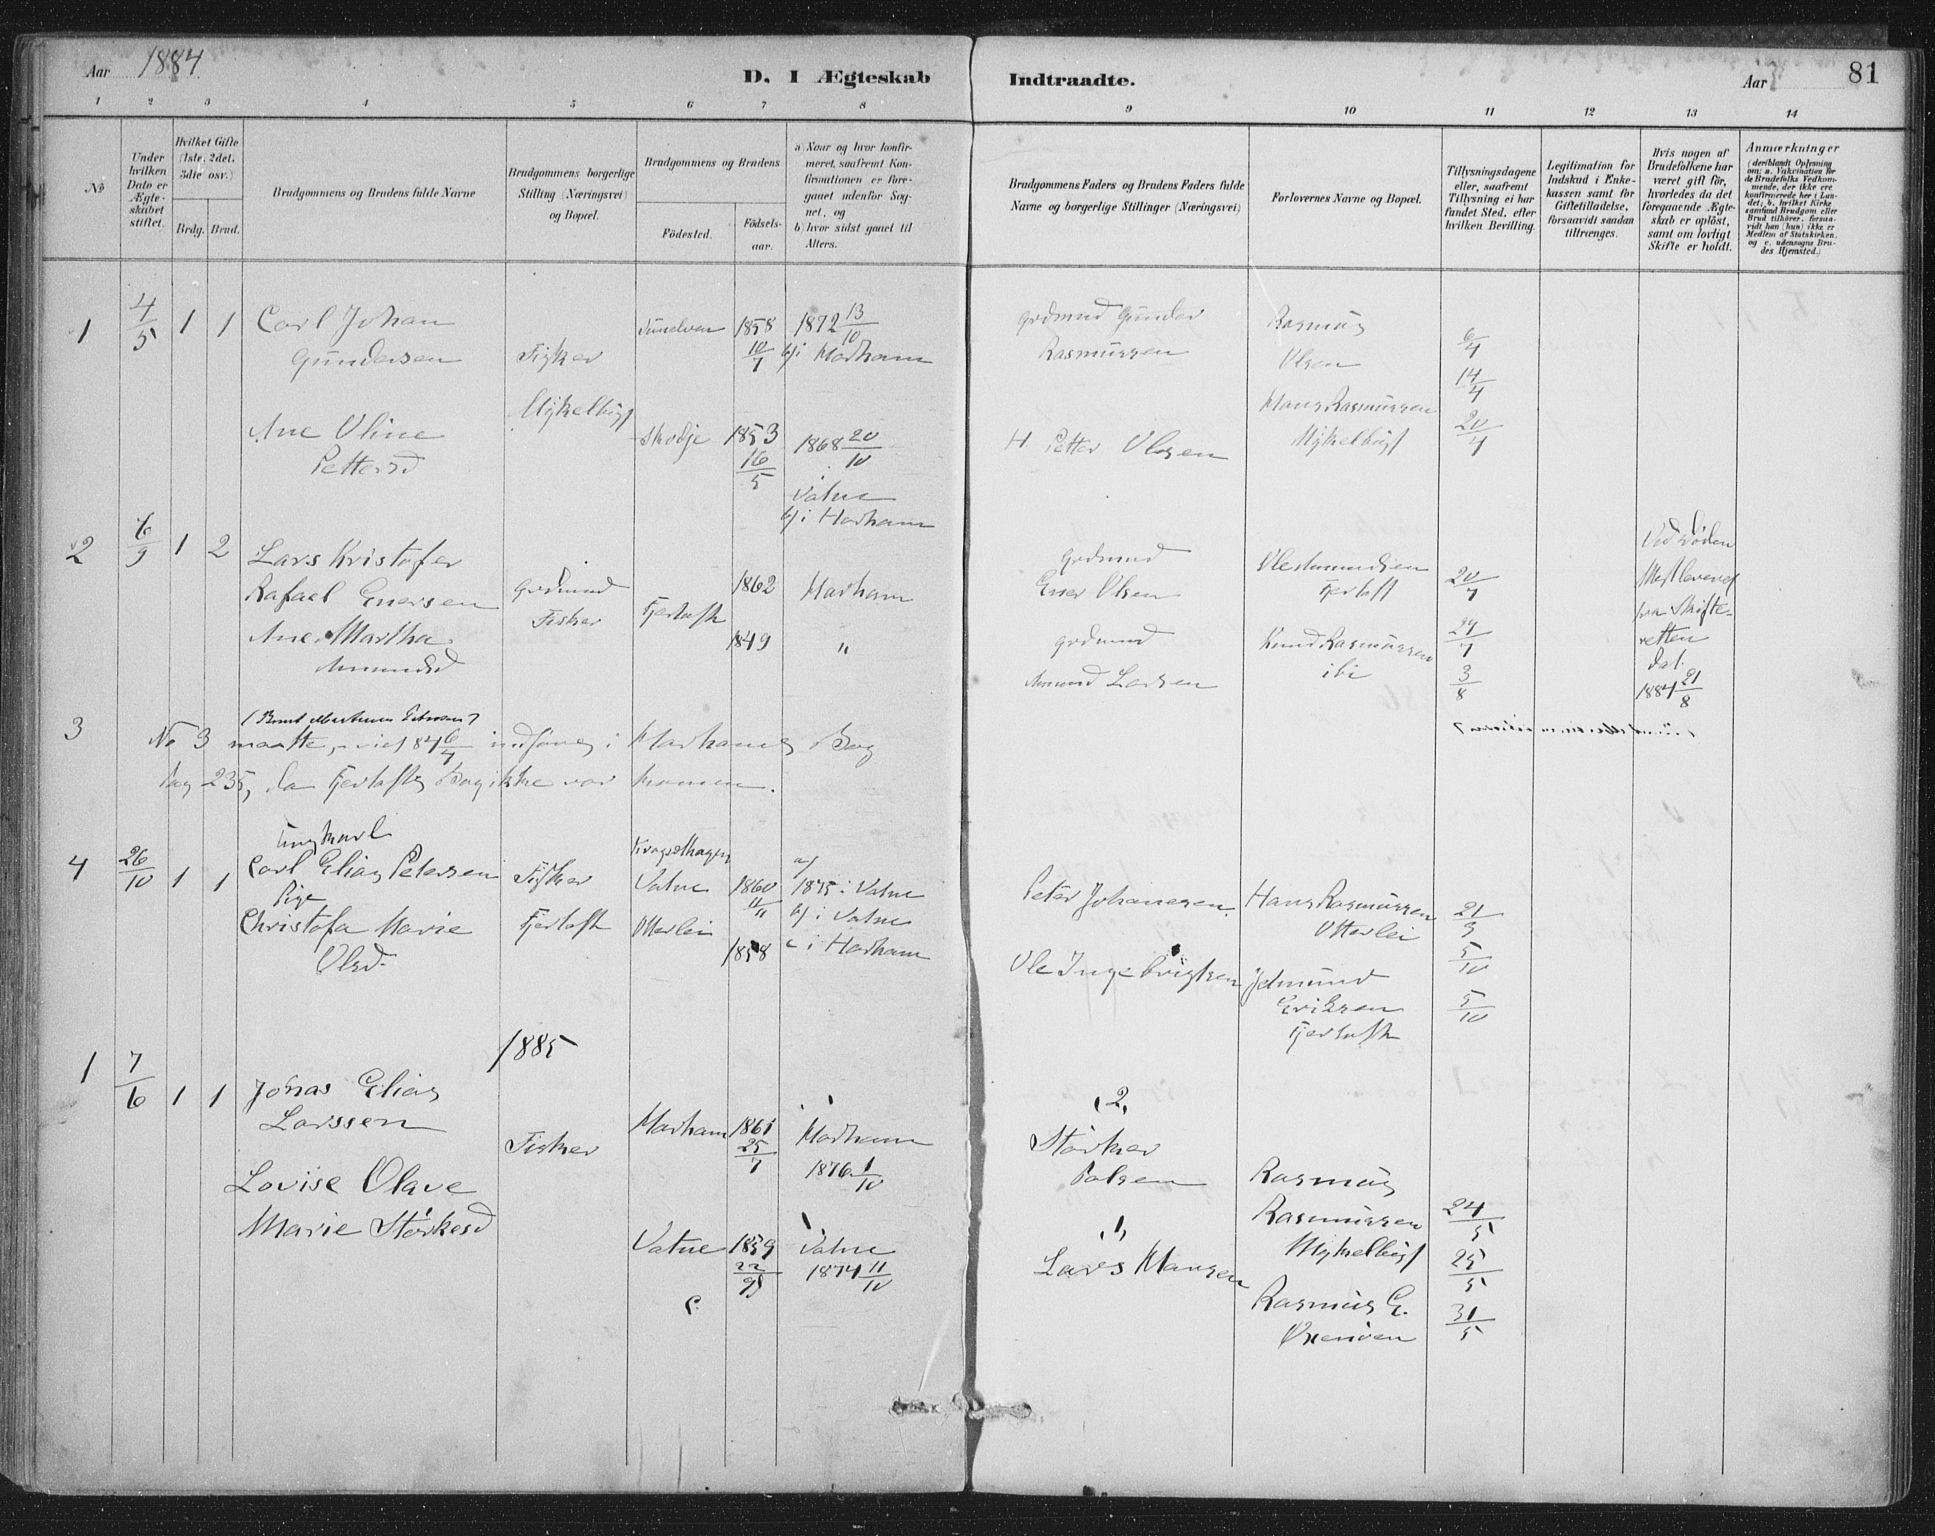 Aar 1884
D. I Ægteskab Indtraadte.
Aar
81
1 2 3 4 5 6 7 8 9 10 11 12 13 14
No
Under hvilken Dato er Ægteskabet stiftet.
Hvilket Gifte (1ste, 2det, 3die osv.)
Brdg. Brud.
Brudgommens og Brudens fulde Navne
Brudgommens borgerlige Stilling (Næringsvei) og Bopæl.
Brudgommens og Brudens
Födested.
Födselsaar.
a) Naar og hvor konfirmeret, saafremt Konfirmationen er foregaaet udenfor Sognet, og
b) hvor sidst gaaet til Alters.
Brudgommens Faders og Brudens Faders fulde Navne og borgerlige Stillinger (Næringsvei)
Forlovernes Navne og Bopæl.
Tillysningsdagene eller, saafremt Tillysning ei har fundet Sted, efter hvilken Bevilling.
Legitimation for Indskud i Enkekassen samt for Giftetilladelse, forsaavidt saadan tiltrænges.
Hvis nogen af Brudefolkene har været gift för, hvorledes da det foregaaende Ægteskab er oplöst, samt om lovligt Skifte er holdt.
Anmærkninger
(deriblandt Oplysning om: a. Vakcination för de Brudefolks Vedkommende, der ikke ere konfirmerede her i Landet; b. hvilket Kirkesamfund Brudgom eller Brud tilhörer, forsaavidt han (hun) ikke er Medlem af Statskirken, og c. udensogns Brudes Hjemsted.)
1 4/5 1 1 Carl Johan
Gundersen
Fisker
Mykelbust
1858
10/7
1872 13/10
b/i Harham
Grdmnd Gunder
Rasmussen
Rasmus
Olsen
6/4
14/4
20/4
Ane Oline
Pettersd
Skodje
1853
16/5
1868 20/10
Vatne
b/i Harham
H Petter Olsen
Hans Rasmussen
Mykelbust
2 6/9 1 2 Lars Kristofer
Rafael Enersen
Grdmnd
Fisker
Fjertoft
1862
Harham
Grdmnd
Ener Olsen
Ole Amundsen
Fjertoft
20/7
Ane Martha
Amundsd
1849
"
Grdmnd
Amund Larsen
Knud Rasmussen
ibi
27/7
3/8
fra Skifte-
retten
dat.
1884 21/8
3
No 3 maatte, vied 84 6/7 indføres i Harhams Bog
Pag 235, da Fjertofts Bog ikke var kommen.
4 26/10 1 1
Ungkarl
Carl Elias Petersen
Fisker
Fjertoft
Vatne
1860
11/11
a/
1875 i Vatne
b/ i Vatne
Peter Johanesen
Hans Rasmussen
Otterlei
21/9
5/10
Pige
Christofa Marie
Olsd.
Otterlei
1858
c i Harham
Ole Ingebrigtsen
Edmund
Eriksen
Fjertoft
5/10
1885
1 7/6 1 1 Jonas Elias
Larssen
Fisker
Harham
1861
25/7
Harham
1876 1/10
(2,
Størker
Palsen
Rasmus
Rasmussen
Mykelbust
24/5
25/5
Lovise Olave
Marie Størkesd
Vatne
1859
Vatne
1874 11/10
c
,1,
Lars Hansen
Rasmus E.
31/5